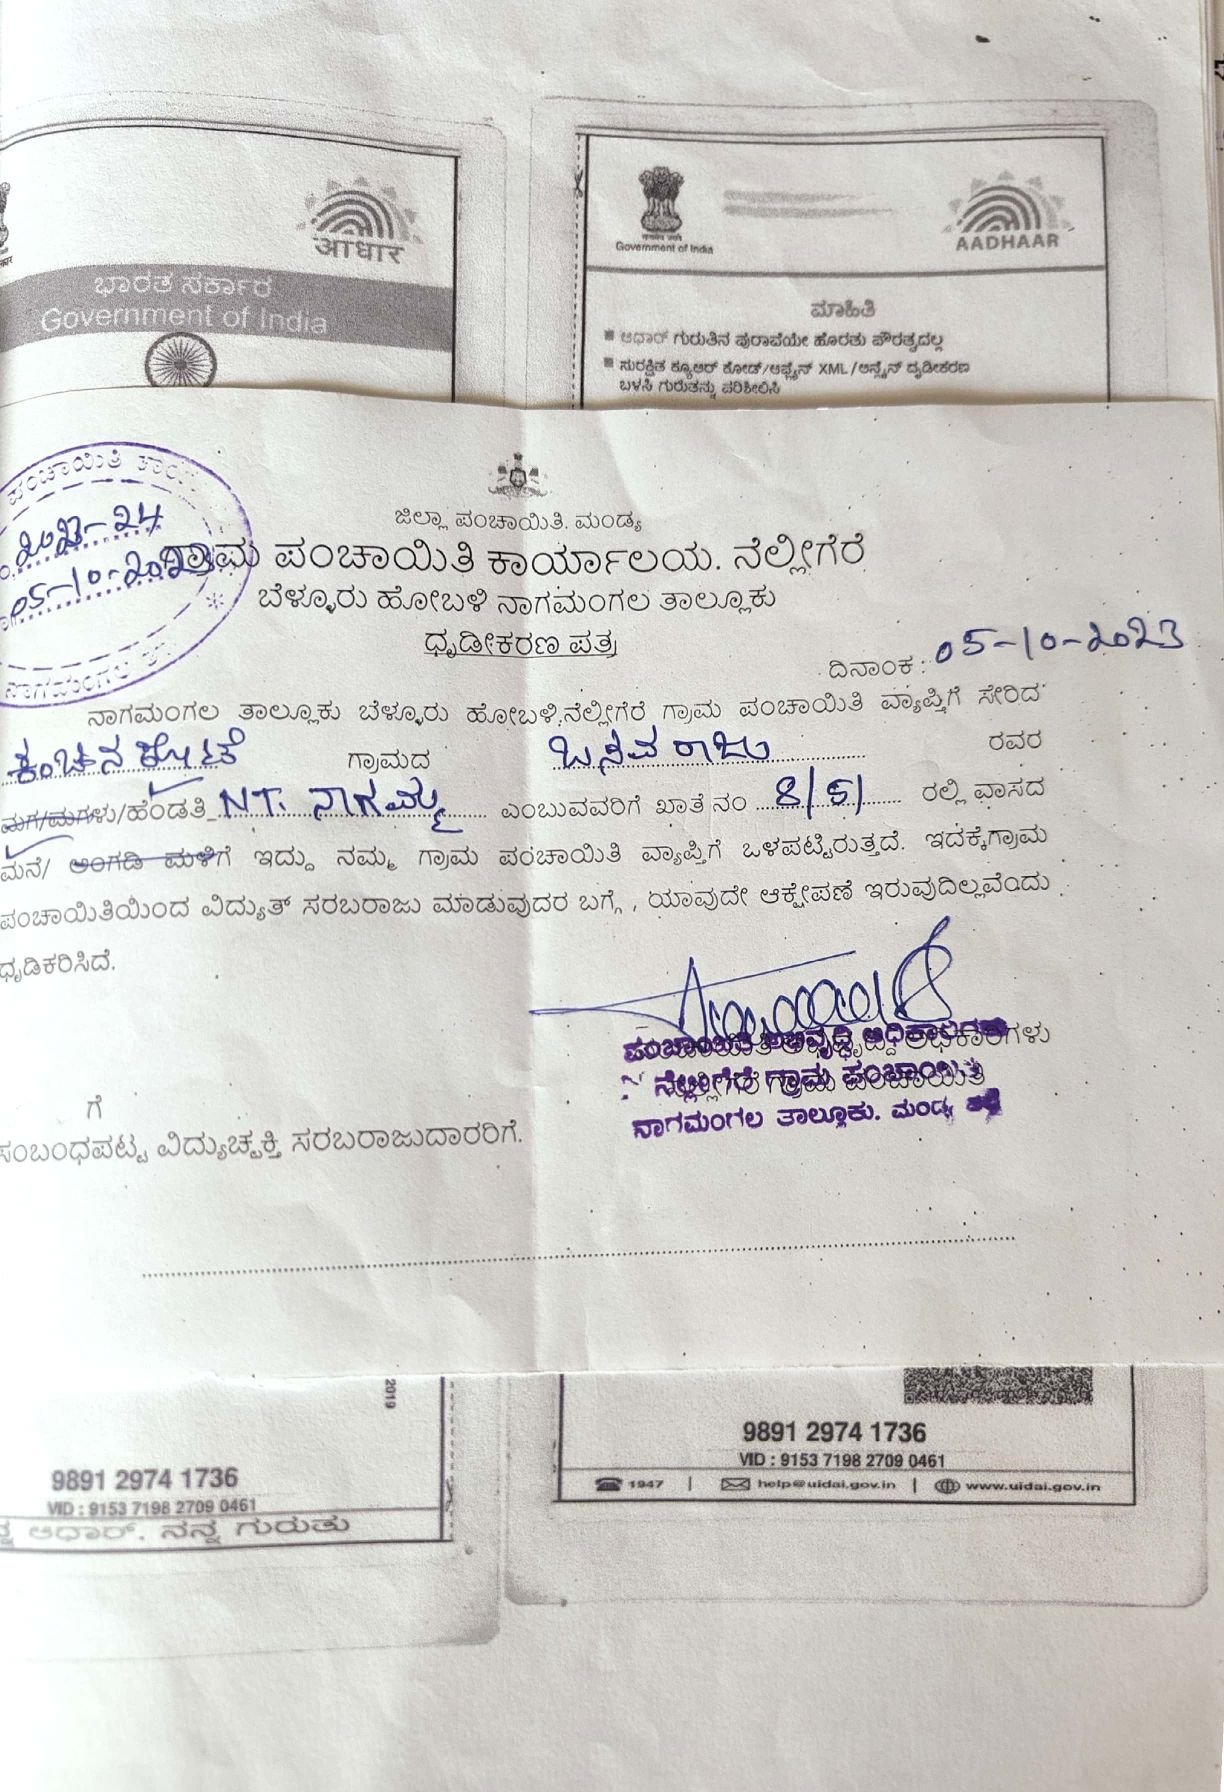 आधार
ಭಾರತ ಸರ್ಕಾರ
Government of India
Government of India
AADHAAR
ಮಾಹಿತಿ
ಆಧಾರ್ ಗುರುತಿನ ಪುರಾವೆಯೇ ಹೊರತು ಪೌರತ್ವದಲ್ಲ
ಸುರಕ್ಷಿತ ಕ್ಯೂಆರ್ ಕೋಡ್/ಆಫ್ಲೈನ್ XML/ಆನ್ಲೈನ್ ದೃಢೀಕರಣ
ಬಳಸಿ ಗುರುತನ್ನು ಪರಿಶೀಲಿಸಿ
ಪಂಚಾಯಿತಿ
2023-24
05-10-2023
ನಾಗಮಂಗಲ
ಜಿಲ್ಲಾ ಪಂಚಾಯಿತಿ. ಮಂಡ್ಯ
ಗ್ರಾಮ ಪಂಚಾಯಿತಿ ಕಾರ್ಯಾಲಯ. ನೆಲ್ಲೀಗೆರೆ
ಬೆಳ್ಳೂರು ಹೋಬಳಿ ನಾಗಮಂಗಲ ತಾಲ್ಲೂಕು
ಧೃಡೀಕರಣ ಪತ್ರ
ದಿನಾಂಕ: 05-10-2023
ನಾಗಮಂಗಲ ತಾಲ್ಲೂಕು ಬೆಳ್ಳೂರು ಹೋಬಳಿ.ನೆಲ್ಲೀಗೆರೆ ಗ್ರಾಮ ಪಂಚಾಯಿತಿ ವ್ಯಾಪ್ತಿಗೆ ಸೇರಿದ
ಕಂಚನ ಕೋಟೆ ಗ್ರಾಮದ ಬಸವರಾಜು ರವರ
ಮಗ/ಮಗಳು/ಹೆಂಡತಿ N.T. ನಾಗಮ್ಮ ಎಂಬುವವರಿಗೆ ಖಾತೆ ನಂ 8/5/ ರಲ್ಲಿ ವಾಸದ
ಮನೆ/ ಅಂಗಡಿ ಮಳಿಗೆ ಇದ್ದು ನಮ್ಮ ಗ್ರಾಮ ಪಂಚಾಯಿತಿ ವ್ಯಾಪ್ತಿಗೆ ಒಳಪಟ್ಟಿರುತ್ತದೆ. ಇದಕ್ಕೆಗ್ರಾಮ
ಪಂಚಾಯಿತಿಯಿಂದ ವಿದ್ಯುತ್ ಸರಬರಾಜು ಮಾಡುವುದರ ಬಗ್ಗೆ , ಯಾವುದೇ ಆಕ್ಷೇಪಣೆ ಇರುವುದಿಲ್ಲವೆಂದು
ಧೃಡಿಕರಿಸಿದೆ.
ಪಂಚಾಯಿತಿ ಅಭಿವೃದ್ದಿ ಅಧಿಕಾರಿಗಳು
ನೆಲ್ಲೀಗೆರೆ ಗ್ರಾಮ ಪಂಚಾಯಿತಿ
ನಾಗಮಂಗಲ ತಾಲ್ಲೂಕು. ಮಂಡ್ಯ
ಗೆ
ಸಂಬಂಧಪಟ್ಟ ವಿದ್ಯುಚ್ಛಕ್ತಿ ಸರಬರಾಜುದಾರರಿಗೆ.
2019
9891 2974 1736
VID : 9153 7198 2709 0461
ಆಧಾರ್, ನನ್ನ ಗುರುತು
9891 2974 1736
VID : 9153 7198 2709 0461
1947 | help@uidai.gov.in | www.uidai.gov.in